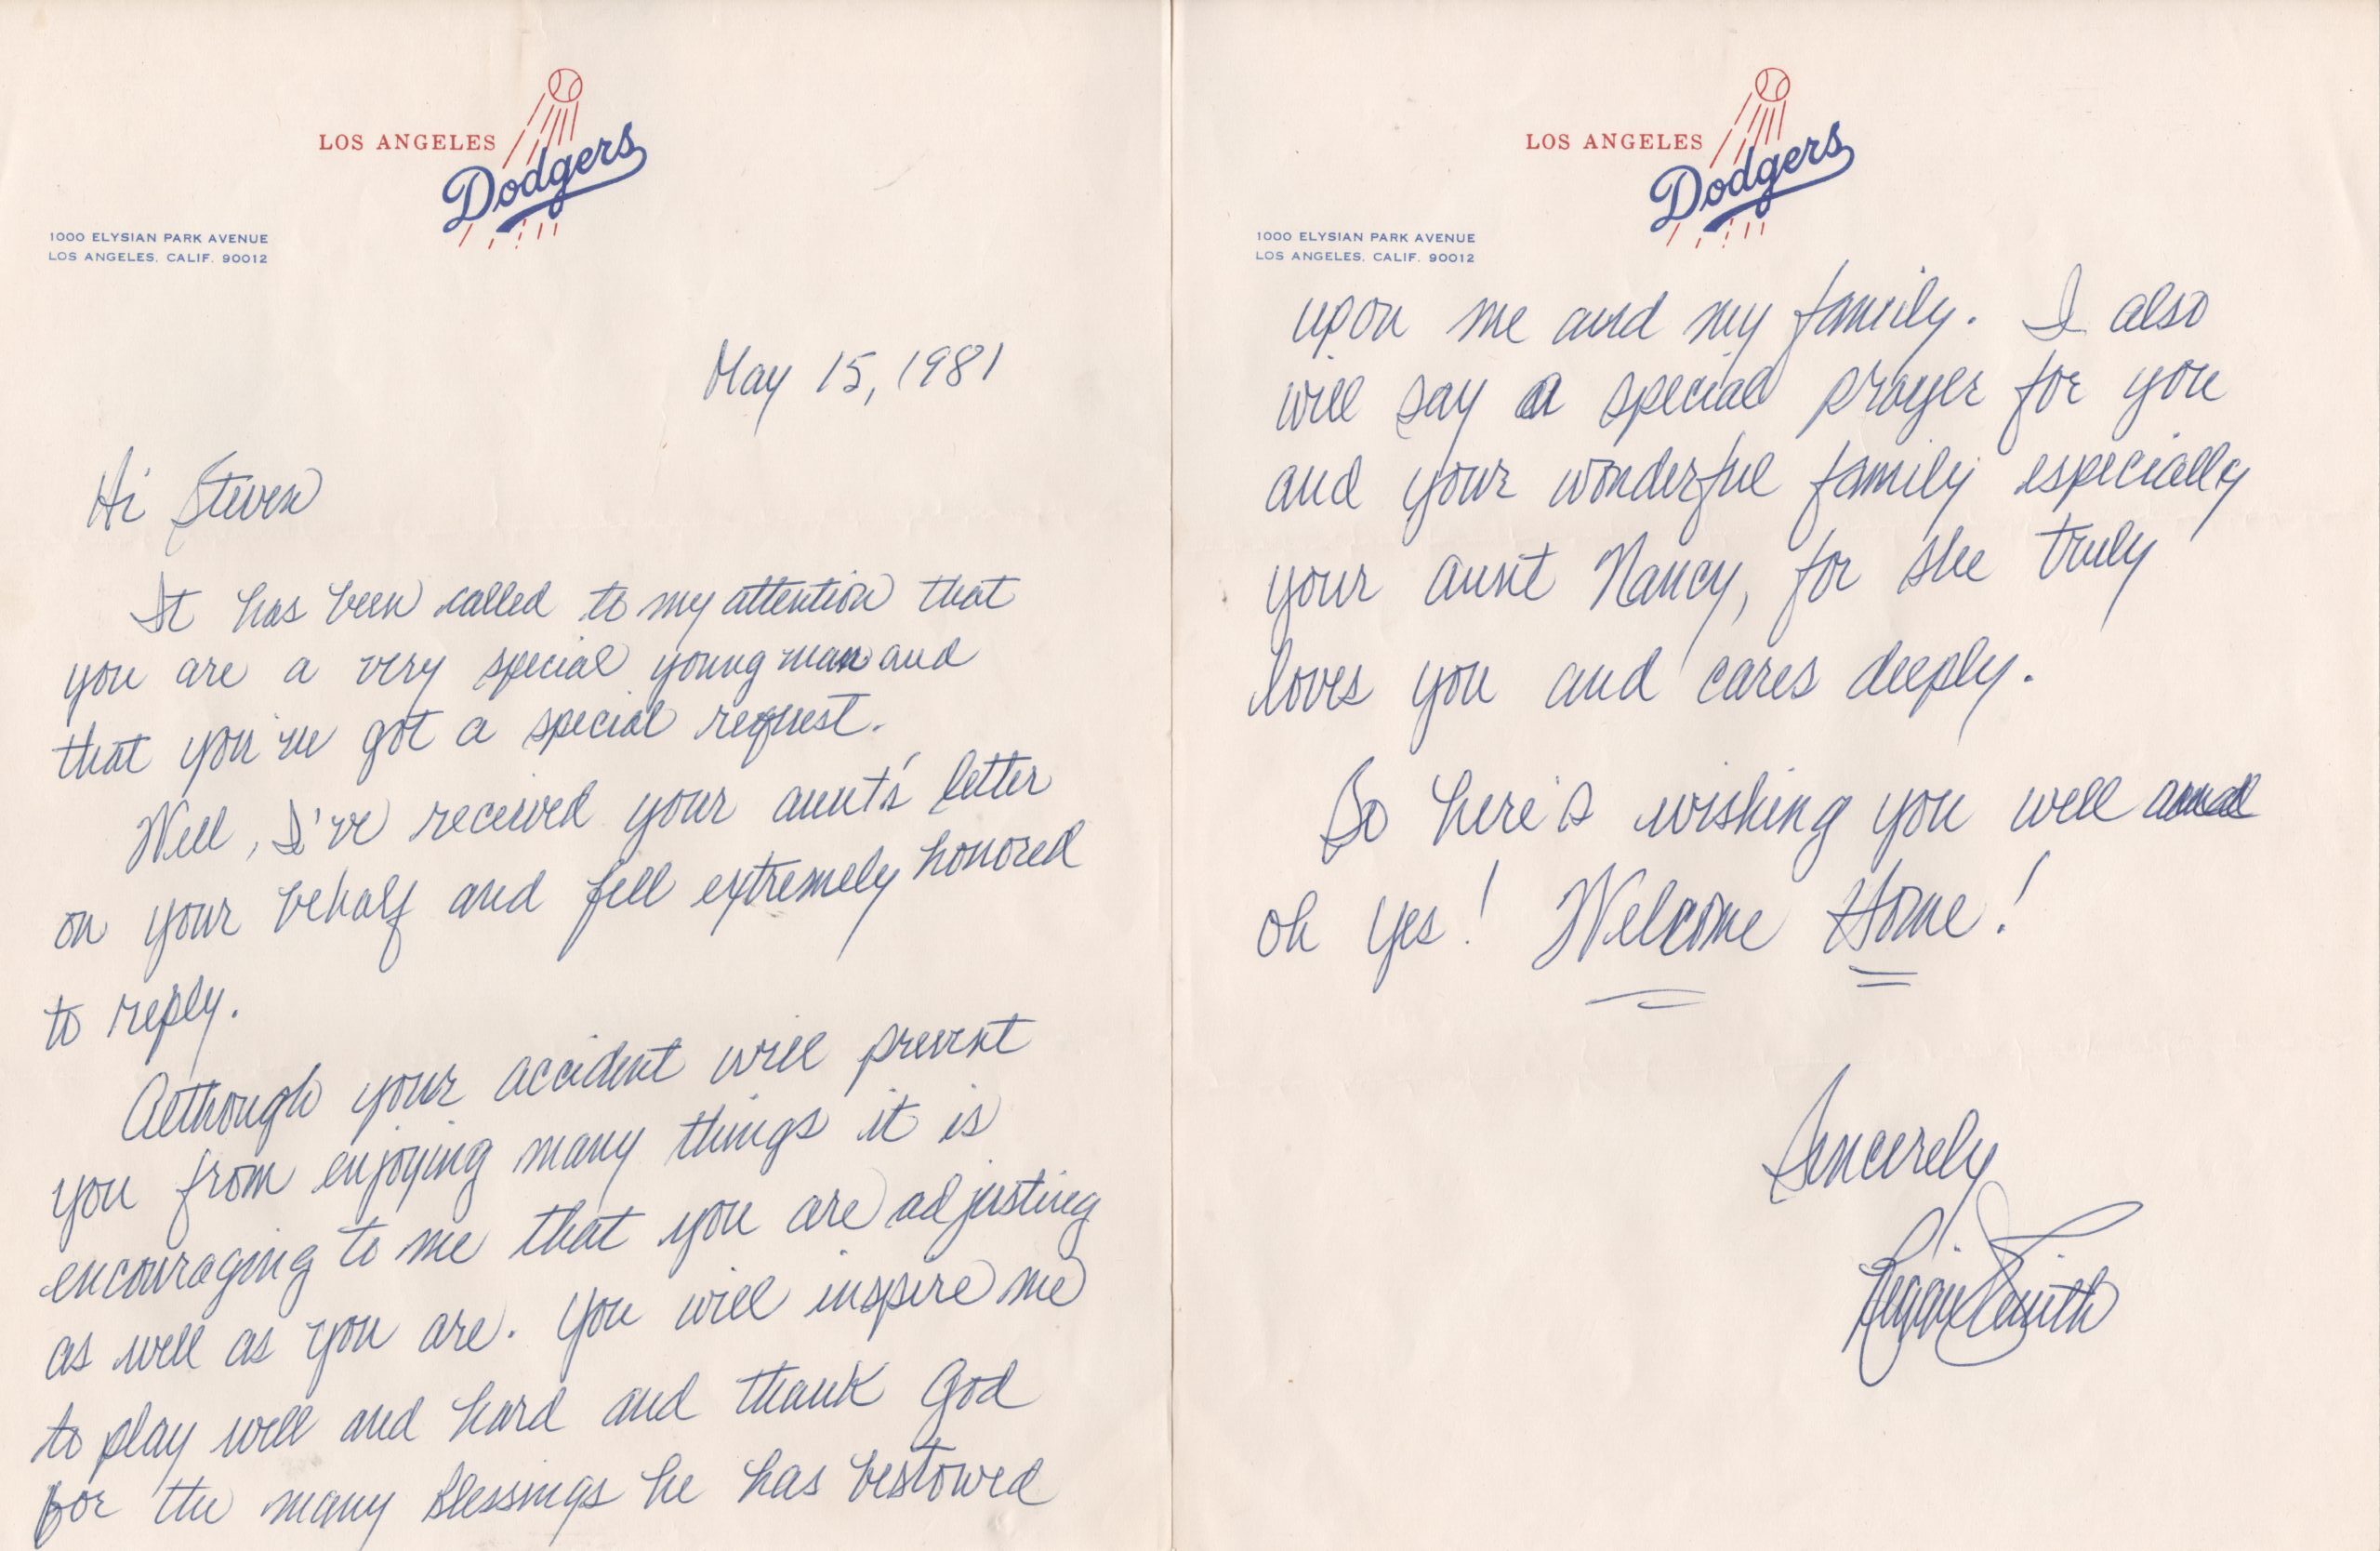 LOS ANGELES
Dodgers
1000 ELYSIAN PARK AVENUE
LOS ANGELES, CALIF. 90012
May 15, 1981
Hi Steven
It has been called to my attention that
you are a very special young man and
that you've got a special request.
Well, I've received your aunt's letter
on your behalf and fell extremely honored
to reply.
Although your accident will prevent
you from enjoying many things it is
encouraging to me that you are adjusting
as well as you are. You will inspire me
to play well and hard and thank God
for the many blessings he has bestowed
LOS ANGELES
Dodgers
1000 ELYSIAN PARK AVENUE
LOS ANGELES, CALIF. 90012
upon me and my family. I also
will say a special prayer for you
and your wonderful family especially
your aunt Nancy, for she truly
loves you and cares deeply.
So here's wishing you well and
oh yes! Welcome Home!
Sincerely
Reggie Smith